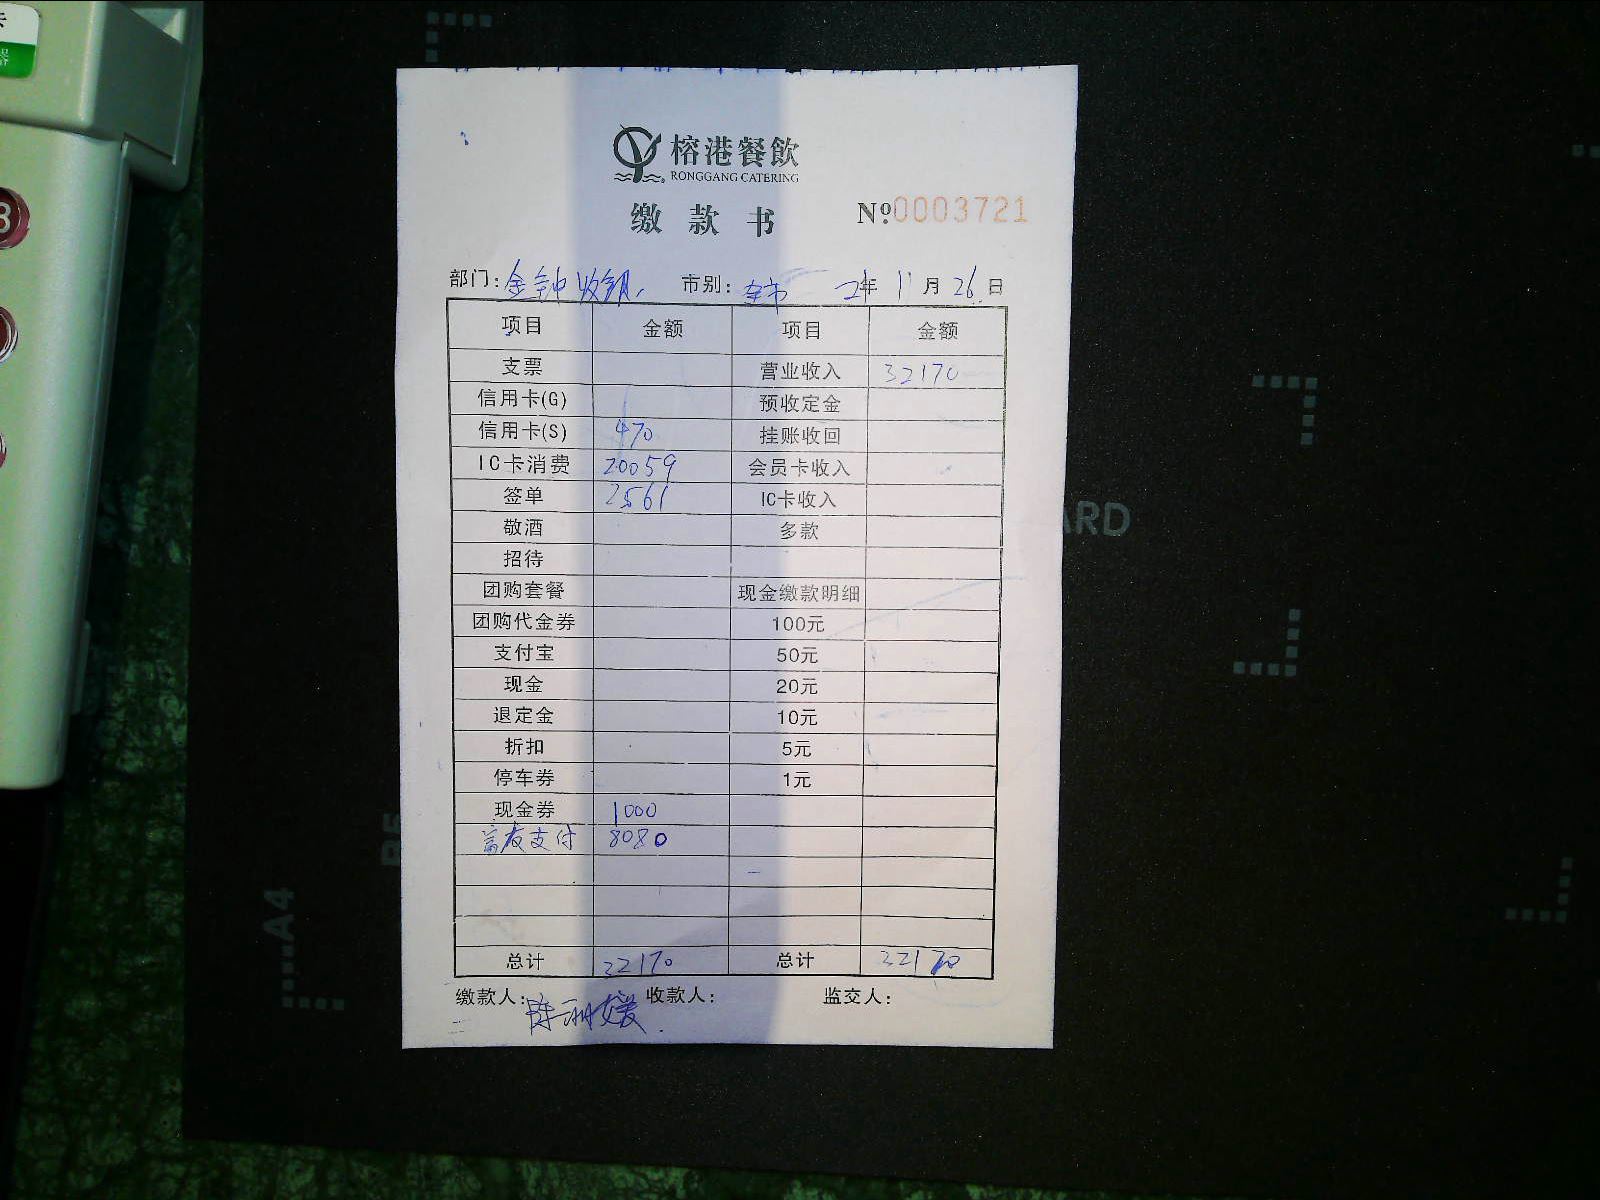 榕港餐飲
RONGGANG CATERING
缴款书 №0003721
部门: 金钟收银 市别: 全市 21年 11月 26日
项目 金额 项目 金额
支票 营业收入 32170
信用卡(G) 预收定金
信用卡(S) 470 挂账收回
IC卡消费 20059 会员卡收入
签单 2561 IC卡收入
敬酒 多款
招待
团购套餐 现金缴款明细
团购代金券 100元
支付宝 50元
现金 20元
退定金 10元
折扣 5元
停车券 1元
现金券 1000
富友支付 8080
总计 32170 总计 32170
缴款人: 陈 媛 收款人: 监交人:
A4
ARD